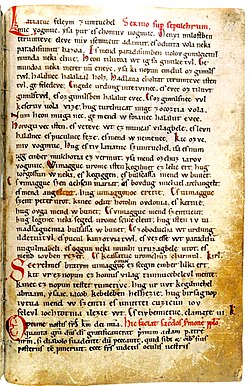 Latiatuc feleym zumtuchel Sermo sup sepulchrum.
mic vogmuc. ysa pur es chomuv uogmuc. Menyi milostben
terumteve eleve miv isemucut adamut. es odutta vola neki
paradisumut hazoa. Es mend paradisumben uolov gimilcictul
munda neki elnie. Heon tilutoa wt ig fa gimilce tvl. Ge
mundoa neki meret nu eneyc. ysa ki nopun emdul oz gimils
twl. halalnec halalaal holz. Hadlaua choltat terumteve isten
tvl. ge feledeve. Engede urdung intetvinec. es evec oz tiluvt
gimilstwl. es oz gimilsben halalut evec. Es oz gimilsnek vvl
keseruv uola vize. hug turchucat mige zocoztia vola.
Num heon muga nec. ge mend w foianec halalut evec.
Horogu vec isten. es veteve wt ez muncas vilagbele. es levn
halalnec es poculnec feze. es mend w nemenec. Kic ozvc.
miv vogmuc. Hug es tiv latiatuv szumtuchel. isa es num
igg ember mulchotia ez vermut. ysa mend ozchuz iarov
vogmuc. Wimagguc uromv isten kegilmet ez lelic ert. hug
iorgossun w neki. es kegiggen. es bulsassa mend w bunet. Es
vimagguc szen achscin mariat. es bovdug michael archangelt.
es mend angelcut. hug uimaggonoc erette. Es uimagguc
szent peter urot. kinec odut hotolm ovdonia. es ketnie.
hug ovga mend w bunet. Es vimagguc mend szentucut.
hug legenec neki seged uromc scine eleut. hug isten iv ui
madsagucmia bulsassa w bunet. Es zoboducha wt urdung
ildetuitvl. es pucul kinzotviatwl. es vezesse wt paradisu
nugulmabeli. es oggun neki munhi uruzagbele utot. es
mend iovben rezet. Es keassatuc uromchuz charmul. Kirl.
Scerelmes bratym uimagomuc ez scegin ember lilki ert.
kit vr ez nopun ez homus vilag timnucebelevl mente.
kinec ez nopun testet tumetivc. hug ur uvt kegilmehel
abraam. ysaac. iacob. kebeleben helhezie. hug birsagnop
ivtva mend w szentii es unuttei cuzicun iov
felevl iochtotnia ilezie wt. Es tivbennetuc. clamate iii. K.